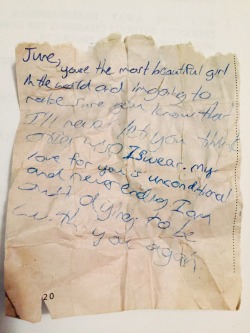 June,
you're the most beautiful girl
in the world and im going to
make sure you know that
I'll never let you think
otherwise I swear. my
love for you is unconditional
and never ending I am
just dying to be
with you again
20